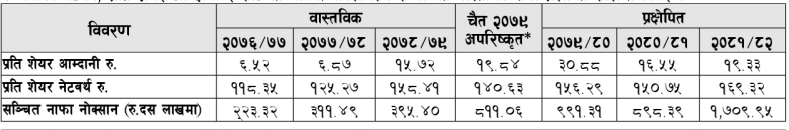 विवरण वास्तविक चैत २०७९ अपरिष्कृत* प्रक्षेपित
२०७६/७७ २०७७/७८ २०७८/७९ २०७९/८० २०८०/८१ २०८१/८२
प्रति शेयर आम्दानी रु. ६.५२ ६.८७ १५.७२ १९.८४ ३०.८८ १६.५५ १९.३३
प्रति शेयर नेटवर्थ रु. ११८.३५ १२५.२७ १५८.४१ १४०.६३ १५६.२९ १५०.७५ १६९.३२
सञ्चित नाफा नोक्सान (रु.दस लाखमा) २२३.३२ ३११.४९ ३९५.४० ८११.०६ ९९१.३१ ८९८.३९ १,७०९.९५